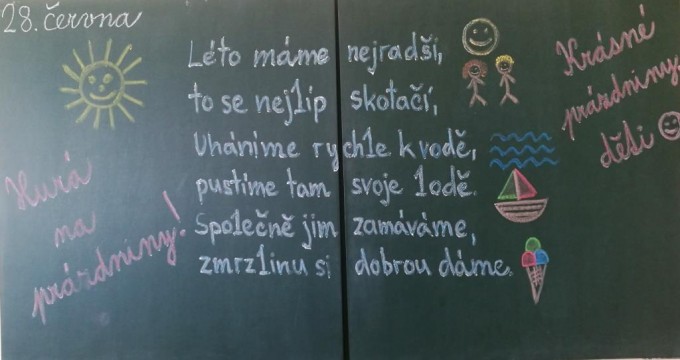 28. června
Léto máme nejradši,
to se nejlíp skotačí,
Uháníme rychle k vodě,
pustíme tam svoje lodě.
Společně jim zamáváme,
zmrzlinu si dobrou dáme.
Hurá
na
prázdniny!
Krásné
prázdniny
děti